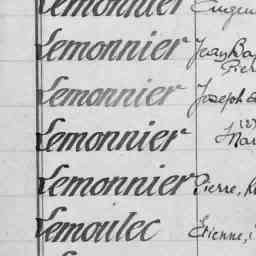 Lemonnier
Lemonnier Jean Ba
Pier
Lemonnier Joseph
Lemonnier
Lemonnier Pierre,
Lemoulec Etienne,